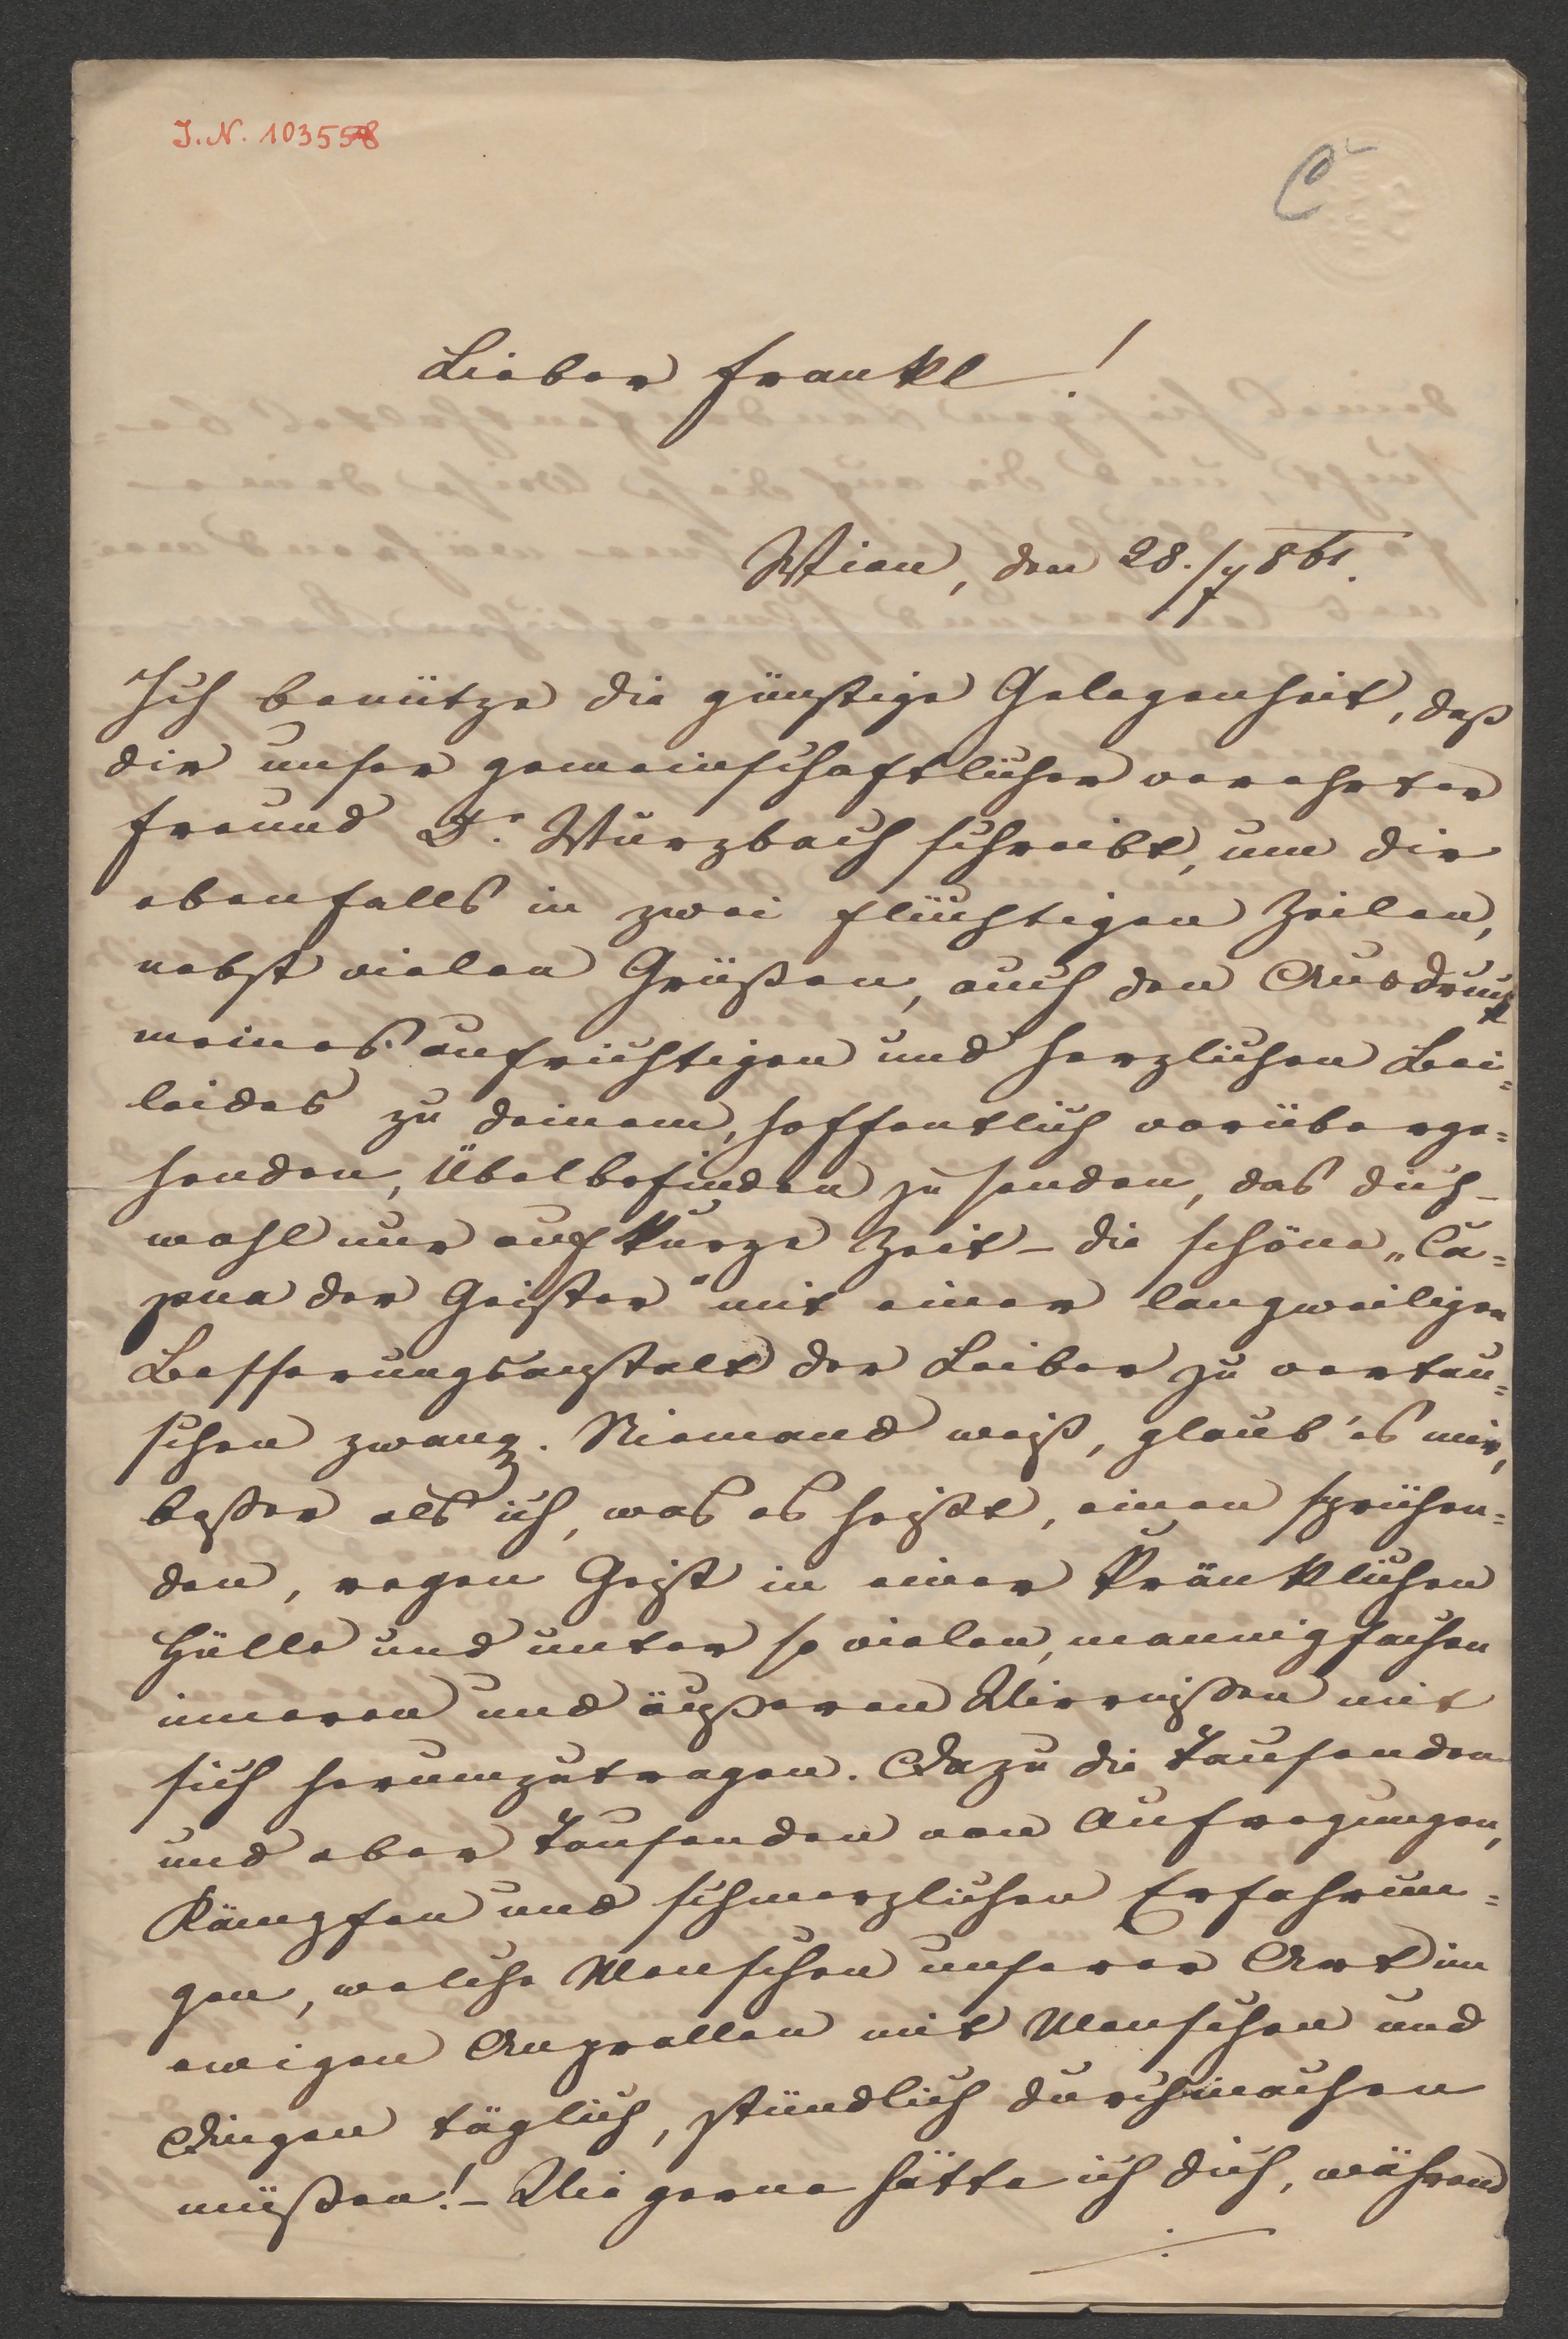 J.N. 103558
Lieber Frankl!
Wien, den 28./7 861.
Ich benütze die günstige Gelegenheit, daß
dir unser gemeinschaftlicher verehrter
Freund Dr. Wurzbach schreibt, um dir
ebenfalls in zwei flüchtigen Zeilen,
nebst vielen Grüßen, auch den Ausdruck
meines aufrichtigen und herzlichen Bei=
leides zu deinem, hoffentlich vorüberge=
henden, Übelbefinden zu senden, das dich –
wohl nur auf kurze Zeit – die schöne „Ca=
pua der Geister" mit einer langweiligen
Besserungsanstalt der Leiber zu vertau=
schen zwang. Niemand weiß, glaub' es mir,
beßer als ich, was es heißt, einen sprühen=
den, regen Geist in einer kränklichen
Hülle und unter so vielen, mannigfachen
inneren und äußeren Wirrnißen mit
sich herumzutragen. Dazu die Tausenden
und aber Tausenden von Aufregungen,
Kämpfen und schmerzlichen Erfahrun=
gen, welche Menschen unserer Art im
ewigen Anprallen mit Menschen und
Dingen täglich, stündlich durchmachen
müßen! – Wie gerne hätte ich dich, während